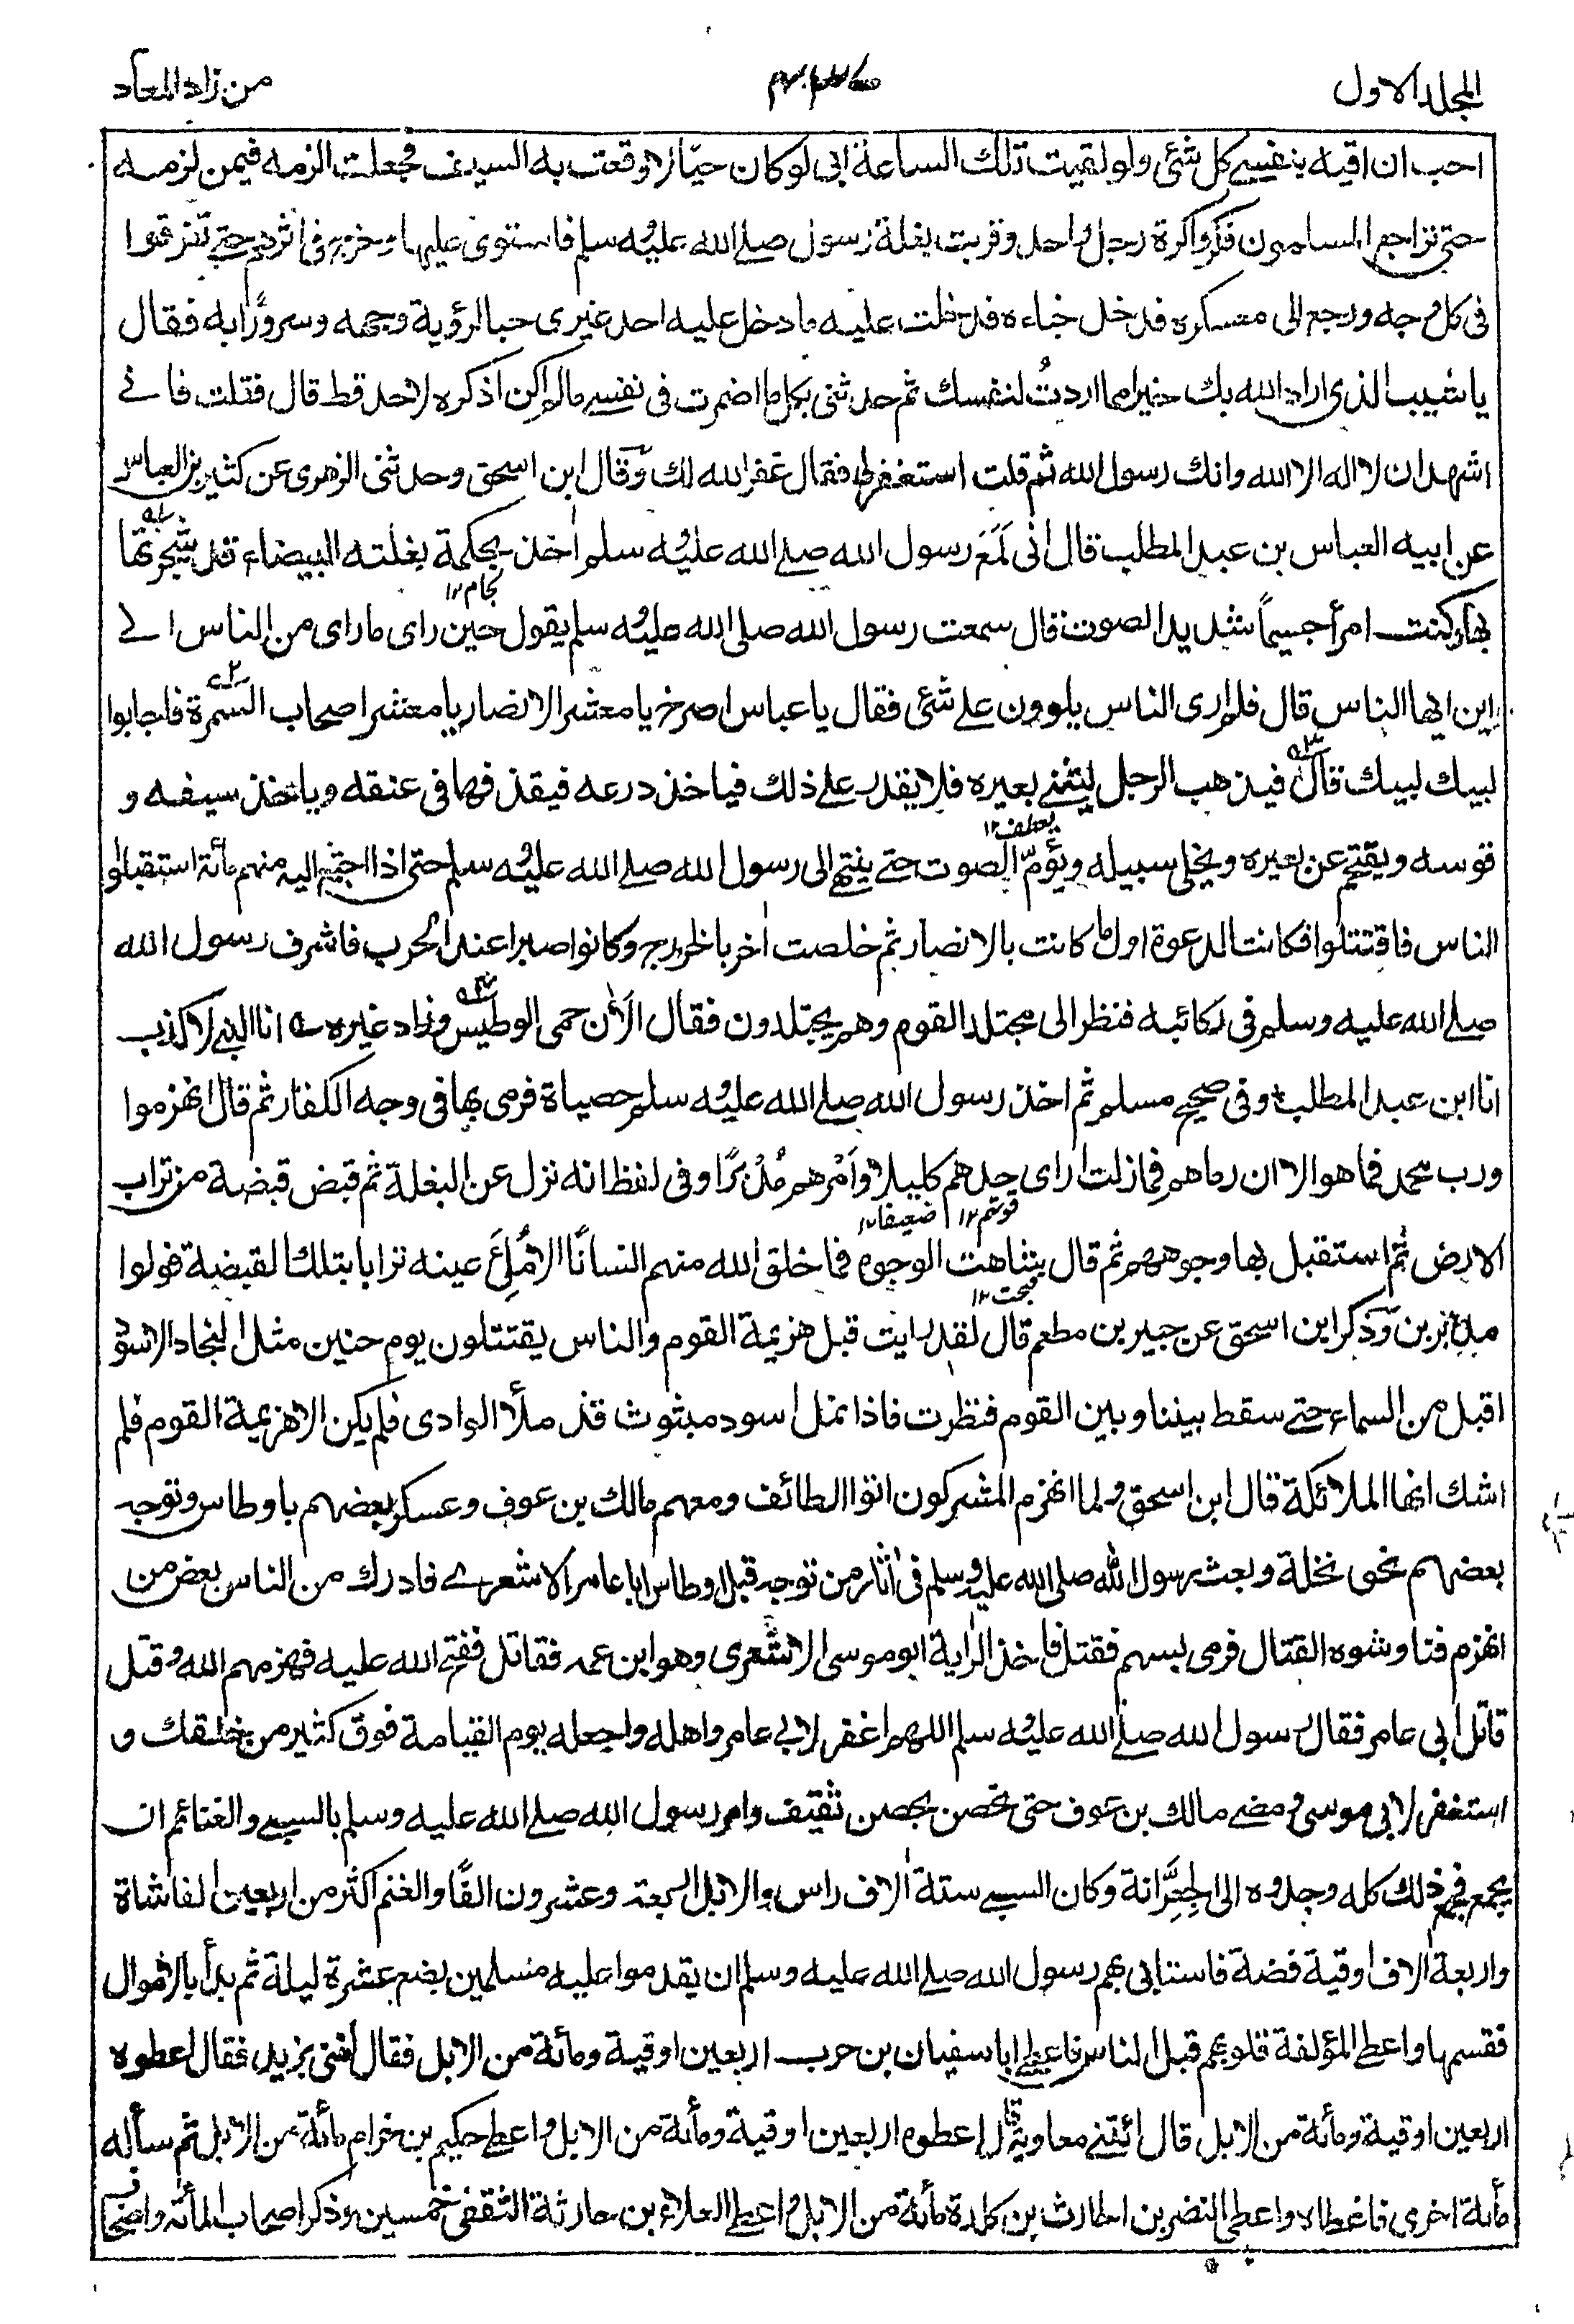 المجلد الاول
من زاد المعاد
احب ان اقيه بنفسي كل شئ ولو لقيت تلك الساعة ابى لو كان حيّا لاوقعت به السيف فجعلت الزمه فيمن لزمه
حتى تراجع المسلمون فكروا كرة رجل واحد وقربت بغلة رسول صلے الله عليه وسلم فاستوى عليها وخرج فى اثرهم حتے تفرقوا
فى كل وجه ورجع الى معسكره فدخل خباءه فدخلت عليه ما دخل عليه احد غيرى حبا لرؤية وجهه وسرورًا به فقال
يا شيب الذى اراد الله بك خيرا مما اردتُ لنفسك ثم حدثنى بكل ما اضمرت فى نفسے مالم اكن اذكره لاحد قط قال فقلت فانے
اشهد ان لا اله الا الله وانك رسول الله ثم قلت استغفر لى فقال غفر الله لك وقال ابن اسحق وحدثنى الزهرى عن كثير بن العباس
عن ابيه العباس بن عبد المطلب قال انى لَمَعَ رسول الله صلے الله عليه وسلم اٰخذ بحكمة بغلته البيضاء قد شجرتها
لجام ١٢
بها وكنت امرأ جسيماً شديد الصوت قال سمعت رسول الله صلى الله عليه وسلم يقول حين راى ما راى من الناس الے
اين ايها الناس قال فلم ارى الناس يلوون علے شئ فقال يا عباس اصرخ يا معشر الانصار يا معشر اصحاب السمرة فاجابوا
لبيك لبيك قال فيذهب الرجل ليثنے بعيره فلا يقدر علے ذلك فياخذ درعه فيقذفها فى عنقه وياخذ سيفه و
يعطف ١٢
قوسه ويقتحم عن بعيره ويخلى سبيله ويؤمّ الصوت حتے ينتهى الى رسول الله صلے الله عليه وسلم حتى اذا اجتمع اليه منهم مائة استقبلوا
الناس فاقتتلوا فكانت الدعوة اول ما كانت بالانصار ثم خلصت اٰخرا بالخزرج وكانوا صبرا عند الحرب فاشرف رسول الله
صلے الله عليه وسلم فى ركائبه فنظر الى مجتلد القوم وهم يجتلدون فقال الآن حمى الوطيس وزاد غيره ؎ انا النبے لا كذب
انا ابن عبد المطلب وفى صحيح مسلم ثم اخذ رسول الله صلے الله عليه وسلم حصياة فرمى بها فى وجه الكفار ثم قال انهزموا
ورب محمد فما هو الا ان رماهم فما زلت ارى حدهم كليلا واَمْرهم مُدْبرًا وفى لفظ انه نزل عن البغلة ثم قبض قبضة من تراب
قوتهم ١٢ ضعيفا ١٢
الارض ثم استقبل بها وجوههم ثم قال شاهت الوجوه فما خلق الله منهم انسانًا الا مُلِئَ عينه ترابا بتلك القبضة فولوا
قبحت ١٢
مدبرين وذكر ابن اسحق عن جبير بن مطعم قال لقد رايت قبل هزيمة القوم والناس يقتتلون يوم حنين مثل البجاد الاسود
اقبل من السماء حتے سقط بيننا وبين القوم فنظرت فاذا نمل اسود مبثوث قد ملأ الوادى فلم يكن الا هزيمة القوم فلم
اشك انها الملائكة قال ابن اسحق ولما انهزم المشركون اتوا الطائف ومعهم مالك بن عوف وعسكر بعضهم باوطاس وتوجه
بعضهم نحو نخلة وبعث رسول الله صلى الله عليه وسلم فى اٰثار من توجه قبل اوطاس ابا عامر الاشعرے فادرك من الناس بعض من
انهزم فناوشوه القتال فرمى بسهم فقتل فاخذ الراية ابو موسى الاشعرى وهو ابن عمه فقاتل ففتح الله عليه فهزمهم الله وقتل
قاتل ابى عامر فقال رسول الله صلے الله عليه وسلم اللهم اغفر لابى عامر واهله واجعله يوم القيامة فوق كثير من خلقك و
استغفر لابى موسى ومضے مالك بن عوف حتى تحصن بحصن ثقيف وامر رسول الله صلے الله عليه وسلم بالسبے والغنائم ان
يجمع فجمع ذلك كله وحدوه الى الجِعِرَّانة وكان السبے ستة اٰلاف راس والابل اربعة وعشرون الفًا والغنم اكثر من اربعين الف شاة
واربعة اٰلاف اوقية فضة فاستانى بهم رسول الله صلے الله عليه وسلم ان يقدموا عليه مسلمين بضع عشرة ليلة ثم بدأ بالاموال
فقسمها واعطے المؤلفة قلوبهم قبل الناس فاعطے ابا سفيان بن حرب اربعين اوقية ومأئة من الابل فقال ابنى يزيد فقال اعطوه
اربعين اوقية ومأئة من الابل قال ائتنے معاوية قال اعطوه اربعين اوقية ومأئة من الابل واعطے حكيم بن حزام مأئة من الابل ثم سأله
مأئة اخرى فاعطاه واعطى النضر بن الحارث بن كلدة مأئة من الابل واعطے العلاء بن حارثة الثقفى خمسين وذكر اصحاب المأئة واصحاب